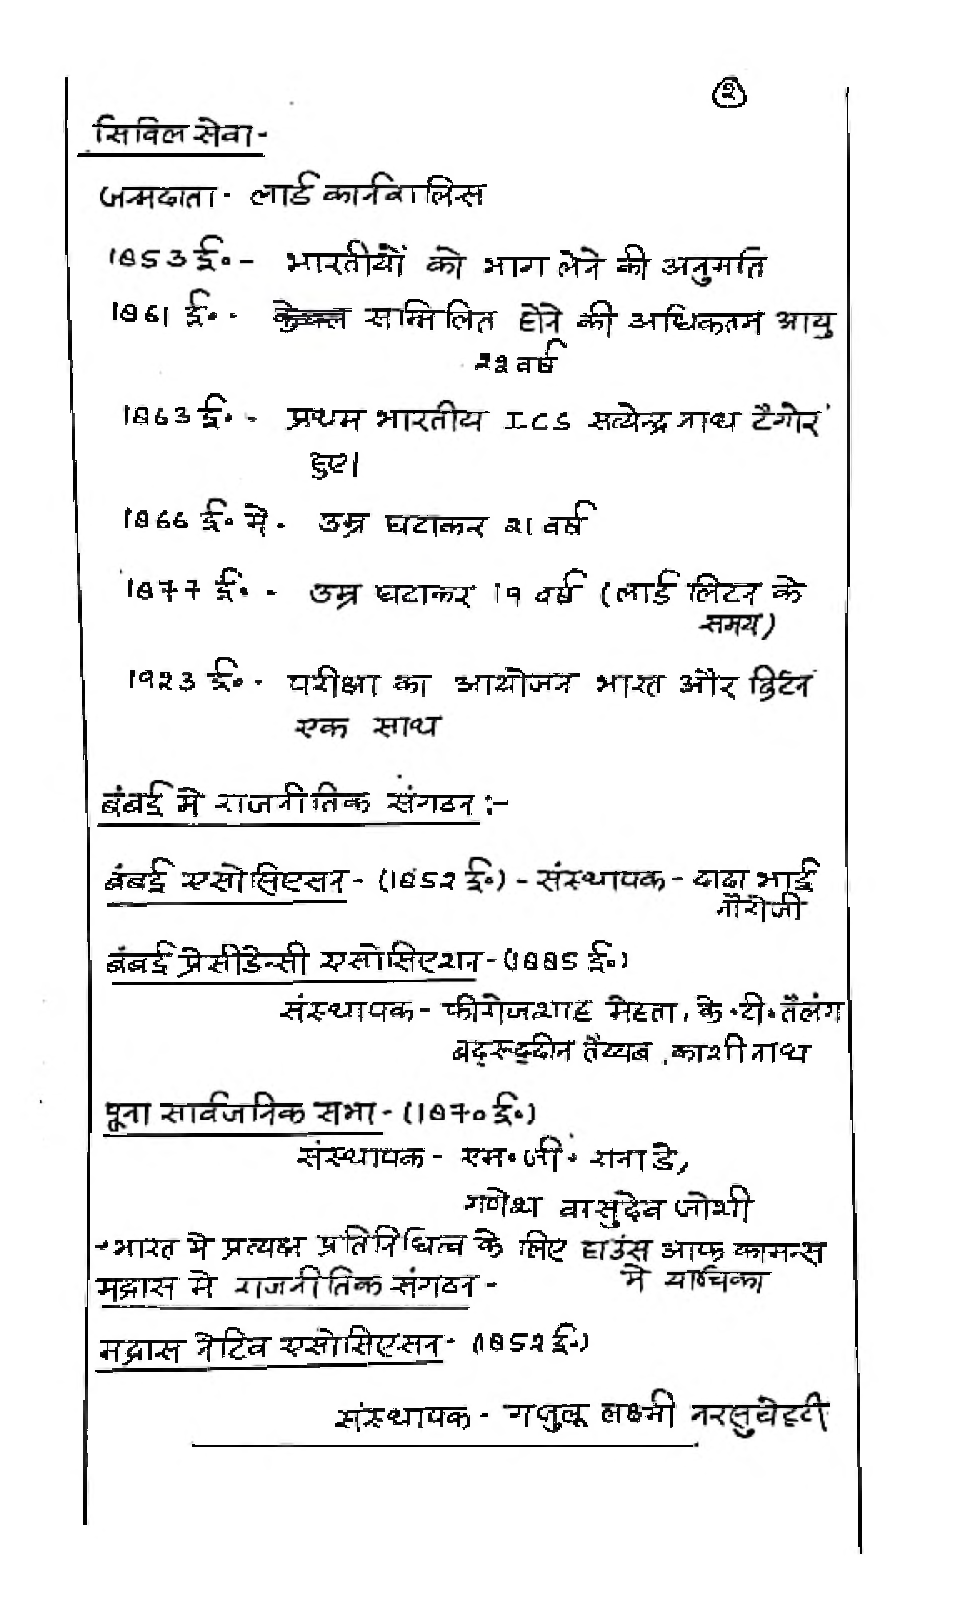 २
सिविल सेवा -
जन्मदाता - लार्ड कार्नवालिस
1853 ई० - भारतीयों को भाग लेने की अनुमति
1861 ई० - सम्मिलित होने की अधिकतम आयु
22 वर्ष
1863 ई० - प्रथम भारतीय I.C.S सत्येन्द्र नाथ टैगोर
हुए।
1866 ई० में - उम्र घटाकर 21 वर्ष
1877 ई० - उम्र घटाकर 19 वर्ष (लार्ड लिटन के
समय)
1923 ई० - परीक्षा का आयोजन भारत और ब्रिटेन
एक साथ
बंबई मे राजनीतिक संगठन :-
बंबई एसोसिएसन - (1852 ई०) - संस्थापक - दादा भाई
नौरोजी
बंबई प्रेसीडेन्सी एसोसिएशन - (1885 ई०)
संस्थापक - फीरोजशाह मेहता, के०टी० तैलंग
बद्रूद्दीन तैय्यब, काशी नाथ
पूना सार्वजनिक सभा - (1870 ई०)
संस्थापक - एम०जी० रानाडे,
गणेश वासुदेव जोशी
भारत मे प्रत्यक्ष प्रतिनिधित्व के लिए हाउंस आफ कामन्स
मे याचिका
मद्रास मे राजनीतिक संगठन -
मद्रास नेटिव एसोसिएसन - (1852 ई०)
संस्थापक - गजुलू लक्ष्मी नरसुचेट्टी